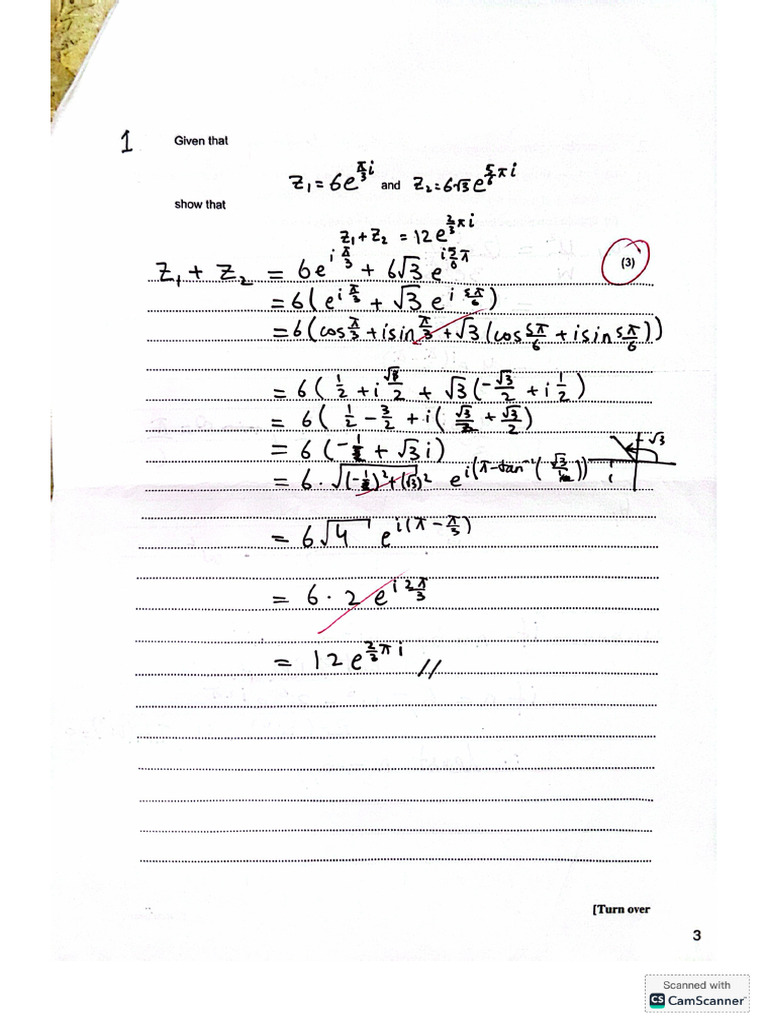 1 Given that
z₁ = 6e^{π/3 i} and z₂ = 6√3 e^{5/6 π i}
show that
z₁ + z₂ = 12e^{2/3 π i}
(3)
z₁ + z₂ = 6e^{i π/3} + 6√3 e^{i 5/6 π}
= 6(e^{i π/3} + √3 e^{i 5π/6})
= 6(cos π/3 + i sin π/3 + √3(cos 5π/6 + i sin 5π/6))
= 6(1/2 + i √3/2 + √3(-√3/2 + i 1/2)
= 6(1/2 - 3/2 + i(√3/2 + √3/2)
= 6(-1 + √3 i)
= 6 · √((-1)² + (√3)²) e^{i(π - tan⁻¹(√3/1))}
√3
1
= 6√4 e^{i(π - π/3)}
= 6 · 2 e^{i 2π/3}
= 12e^{2/3 π i} //
[Turn over
3
Scanned with
CS CamScanner